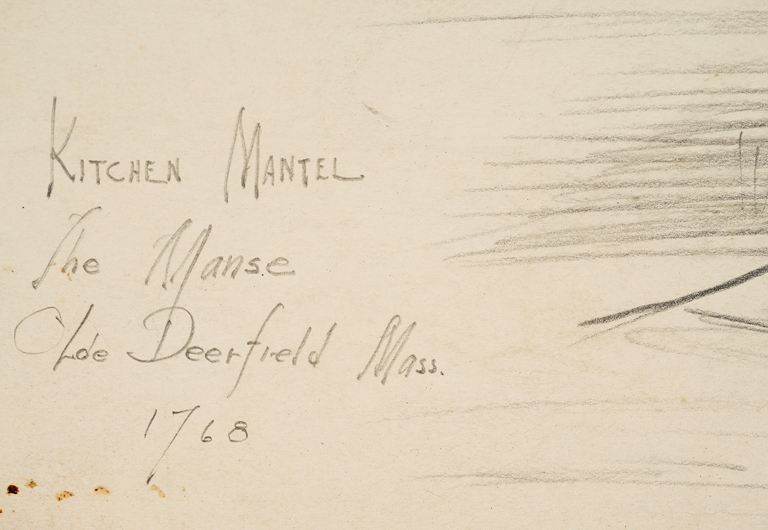 KITCHEN MANTEL
The Manse
Olde Deerfield Mass.
1768